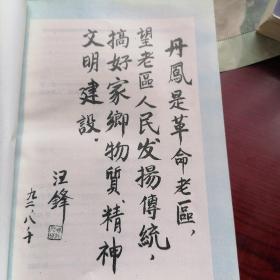 丹鳳是革命老區，
望老區人民发揚傳統，
搞好家鄉物質精神
文明建設。
汪鋒